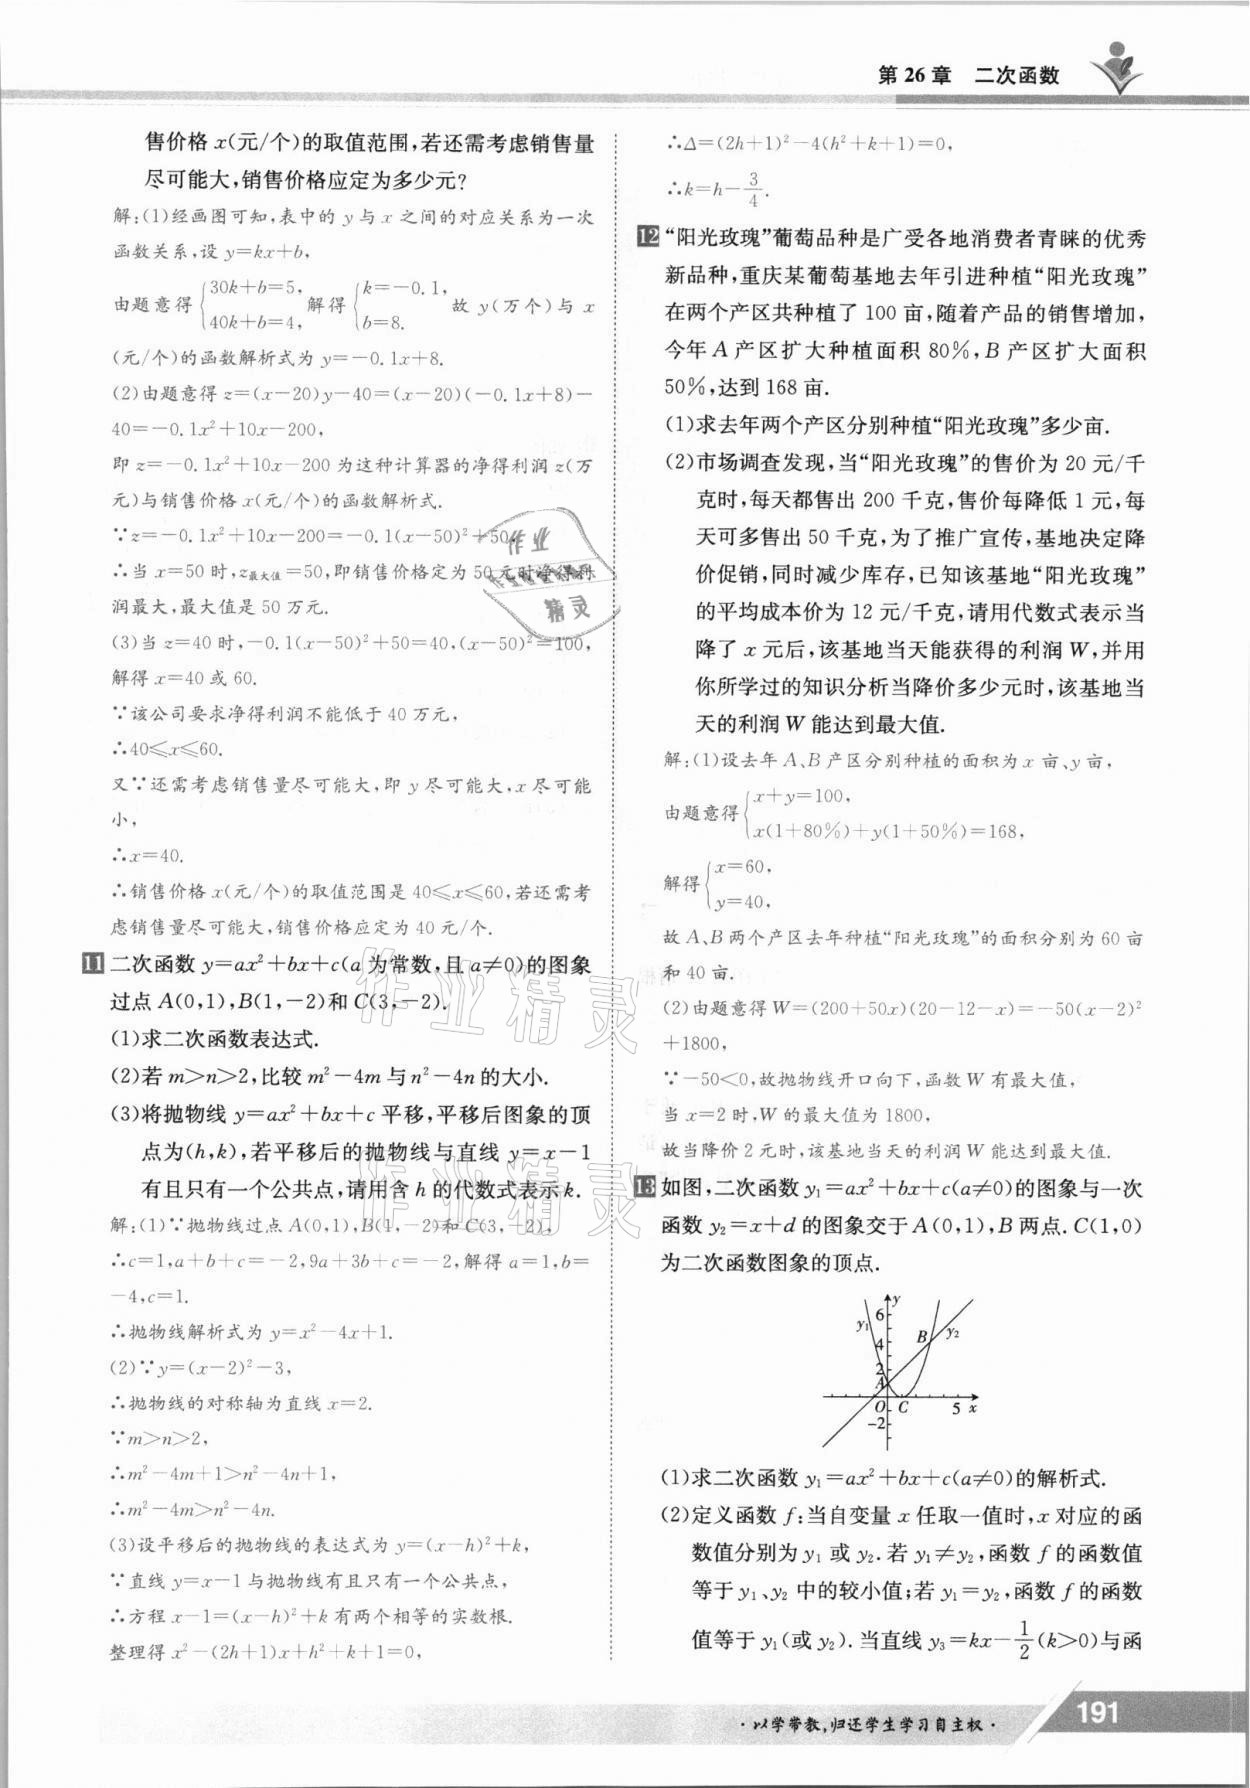 第26章 二次函数
售价格 x(元/个)的取值范围,若还需考虑销售量
尽可能大,销售价格应定为多少元?
解:(1)经画图可知,表中的 y 与 x 之间的对应关系为一次
函数关系,设 y=kx+b,
由题意得{30k+b=5, 40k+b=4, 解得{k=-0.1, b=8. 故 y(万个)与 x
(元/个)的函数解析式为 y=-0.1x+8.
(2)由题意得 z=(x-20)y-40=(x-20)(-0.1x+8)-
40=-0.1x²+10x-200,
即 z=-0.1x²+10x-200 为这种计算器的净得利润 z(万
元)与销售价格 x(元/个)的函数解析式.
∵z=-0.1x²+10x-200=-0.1(x-50)²+50,
∴当 x=50 时,z最大值=50,即销售价格定为 50 元时净得利
润最大,最大值是 50 万元.
(3)当 z=40 时,-0.1(x-50)²+50=40,(x-50)²=100,
解得 x=40 或 60.
∵该公司要求净得利润不能低于 40 万元,
∴40≤x≤60.
又∵还需考虑销售量尽可能大,即 y 尽可能大,x 尽可能
小,
∴x=40.
∴销售价格 x(元/个)的取值范围是 40≤x≤60,若还需考
虑销售量尽可能大,销售价格应定为 40 元/个.
11 二次函数 y=ax²+bx+c(a 为常数,且 a≠0)的图象
过点 A(0,1),B(1,-2)和 C(3,-2).
(1)求二次函数表达式.
(2)若 m>n>2,比较 m²-4m 与 n²-4n 的大小.
(3)将抛物线 y=ax²+bx+c 平移,平移后图象的顶
点为(h,k),若平移后的抛物线与直线 y=x-1
有且只有一个公共点,请用含 h 的代数式表示 k.
解:(1)∵抛物线过点 A(0,1),B(1,-2)和 C(3,-2),
∴c=1,a+b+c=-2,9a+3b+c=-2,解得 a=1,b=
-4,c=1.
∴抛物线解析式为 y=x²-4x+1.
(2)∵y=(x-2)²-3,
∴抛物线的对称轴为直线 x=2.
∵m>n>2,
∴m²-4m+1>n²-4n+1,
∴m²-4m>n²-4n.
(3)设平移后的抛物线的表达式为 y=(x-h)²+k,
∵直线 y=x-1 与抛物线有且只有一个公共点,
∴方程 x-1=(x-h)²+k 有两个相等的实数根.
整理得 x²-(2h+1)x+h²+k+1=0,
∴Δ=(2h+1)²-4(h²+k+1)=0,
∴k=h-3/4.
12 “阳光玫瑰”葡萄品种是广受各地消费者青睐的优秀
新品种,重庆某葡萄基地去年引进种植“阳光玫瑰”
在两个产区共种植了 100 亩,随着产品的销售增加,
今年 A 产区扩大种植面积 80%,B 产区扩大面积
50%,达到 168 亩.
(1)求去年两个产区分别种植“阳光玫瑰”多少亩.
(2)市场调查发现,当“阳光玫瑰”的售价为 20 元/千
克时,每天都售出 200 千克,售价每降低 1 元,每
天可多售出 50 千克,为了推广宣传,基地决定降
价促销,同时减少库存,已知该基地“阳光玫瑰”
的平均成本价为 12 元/千克,请用代数式表示当
降了 x 元后,该基地当天能获得的利润 W,并用
你所学过的知识分析当降价多少元时,该基地当
天的利润 W 能达到最大值.
解:(1)设去年 A、B 产区分别种植的面积为 x 亩、y 亩,
由题意得{x+y=100, x(1+80%)+y(1+50%)=168,
解得{x=60, y=40,
故 A、B 两个产区去年种植“阳光玫瑰”的面积分别为 60 亩
和 40 亩.
(2)由题意得 W=(200+50x)(20-12-x)=-50(x-2)²
+1800,
∵-50<0,故抛物线开口向下,函数 W 有最大值,
当 x=2 时,W 的最大值为 1800,
故当降价 2 元时,该基地当天的利润 W 能达到最大值.
13 如图,二次函数 y₁=ax²+bx+c(a≠0)的图象与一次
函数 y₂=x+d 的图象交于 A(0,1),B 两点. C(1,0)
为二次函数图象的顶点.
y
6
y₁
B
y₂
4
2
A
O
C
5
x
-2
(1)求二次函数 y₁=ax²+bx+c(a≠0)的解析式.
(2)定义函数 f:当自变量 x 任取一值时,x 对应的函
数值分别为 y₁ 或 y₂. 若 y₁≠y₂,函数 f 的函数值
等于 y₁、y₂ 中的较小值;若 y₁=y₂,函数 f 的函数
值等于 y₁(或 y₂). 当直线 y₃=kx-1/2(k>0)与函
·以学带教,归还学生学习自主权·
191
作业
精灵
作业精灵
作业精灵